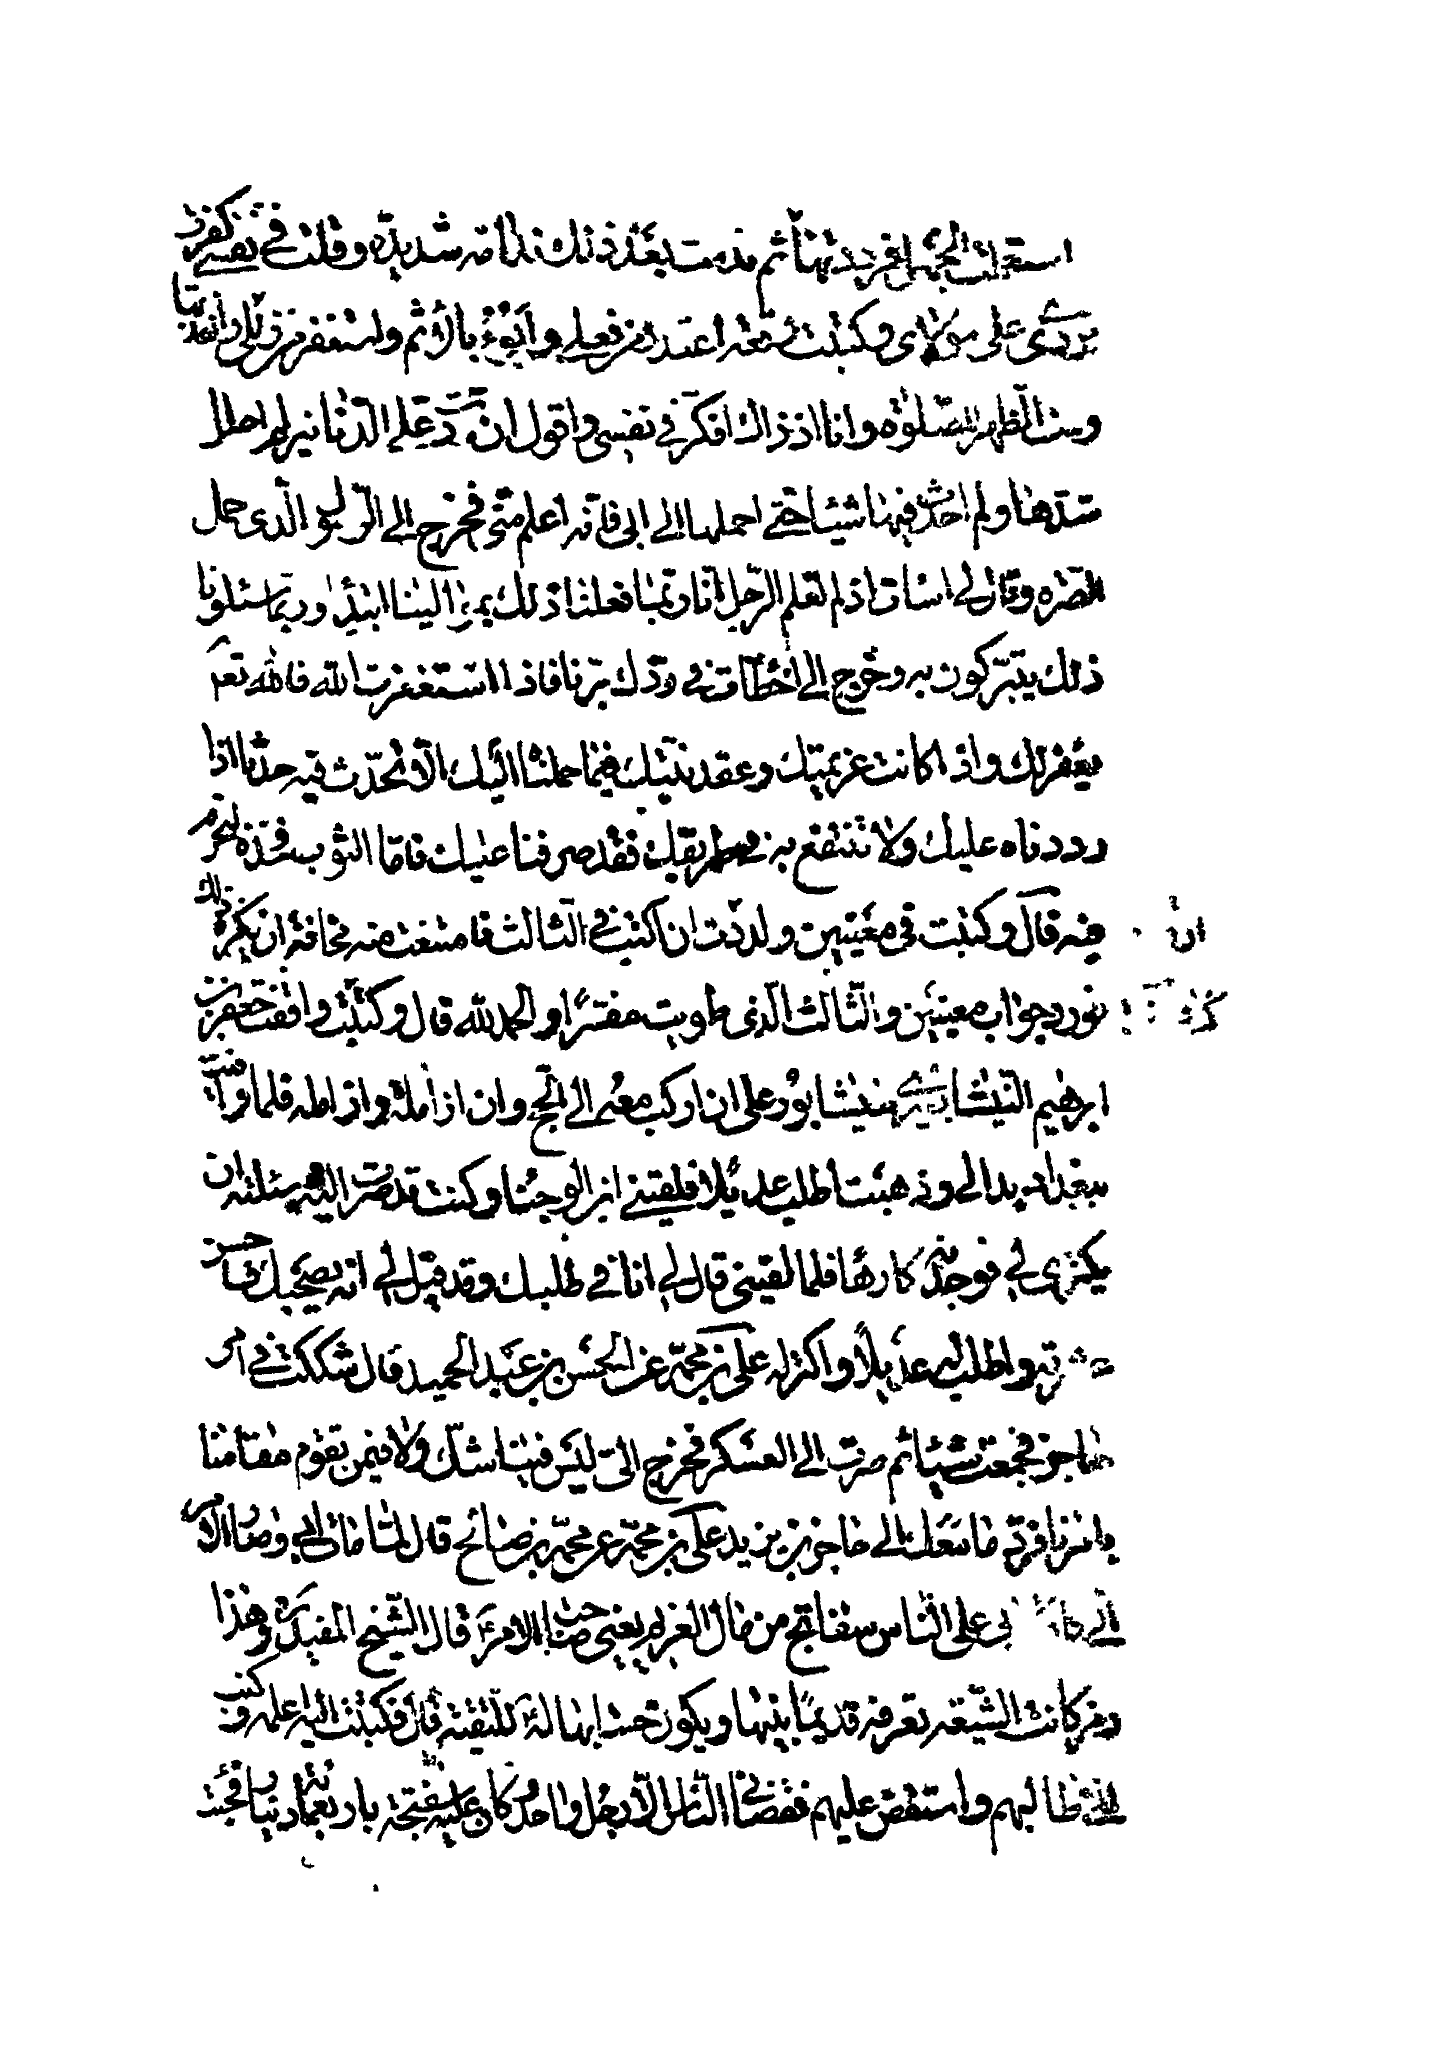 استعملت الجهل فرددتها ثم ندمت بعد ذلك ندامة شديدة وقلت في نفسي كفرت
بردّي على مولاي وكتبت رقعة اعتذر من فعلي وابوء بالاثم واستغفر من ذلك وانفذتها
وقمت اتطهر للصلوة وانا اذ ذاك افكر في نفسي واقول ان ردّت علي الدنانير لم احلل
شدّها ولم احدث فيها شيئا حتى احملها الى ابي فانه اعلم منّي فخرج الى الرسول الذي حمل
الصرة وقال لي اسأت اذ لم تعلم الرجل انا ربّما فعلنا ذلك بموالينا ابتداء وربّما سئلونا
ذلك يتبرّكون به وخرج الي اخطأت في ردّك برّنا فاذا استغفرت الله فالله تعم
يغفر لك واذا كانت عزيمتك وعقد نيتك فيما حملنا اليك الا تحدث فيه حدثا اذا
رددناه عليك ولا تنتفع به في طريقك فقد صرفنا عنك فامّا الثوب فخذه لتحرم
فيه قال وكتبت في معنيين واردت ان اكتب في الثالث فامتنعت منه مخافة ان يكره ذلك
فورد جواب معنيين والثالث الذي طويت مفسّرا والحمد لله قال وكنت وافقت جعفر بن
ابرهيم النيشابوري بنيشابور على ان اركب معه الى الحج وازامله فلما وافيت
ببغداد بدا لي وذهبت اطلب عديلا فلقيني ابن الوجنا وكنت قد صرت اليه وسئلته ان
يكتري لي فوجدته كارها فلما لقيني قال لي انا في طلبك وقد قيل لي انه يصحبك فاحسن
عشرته واطلب له عديلا واكتر له علي بن محمد عن الحسن بن عبد الحميد قال شككت في امر
حاجز فجمعت شيئا ثم صرت الى العسكر فخرج الى ليس فينا شك ولا فيمن يقوم مقامنا
بامرنا فردّ ما معك الى حاجز بن يزيد علي بن محمد عن محمد بن صالح قال لما مات ابي وصار الامر
الي كان لابي على الناس سفاتج من مال الغريم يعني صاحب الامر ع قال الشيخ المفيد ره وهذا
رمز كانت الشيعة تعرفه قديما بينها ويكون خطابها له ع للتقية قال فكتبت اليه اعلمه فكتب
الي طالبهم واستقض عليهم فقضاني الناس الا رجل واحد وكان عليه سفتجة باربعمائة دينار فجئت